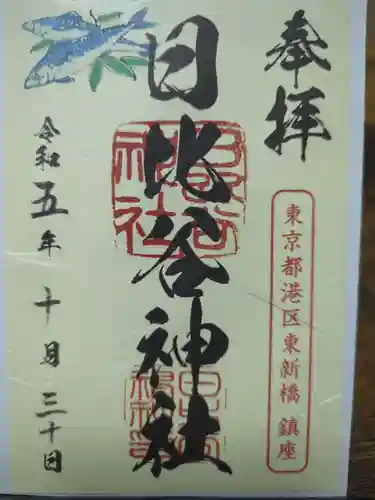 奉拝
東京都港区東新橋 鎮座
日比谷神社
日比谷神社
令和五年十月三十日